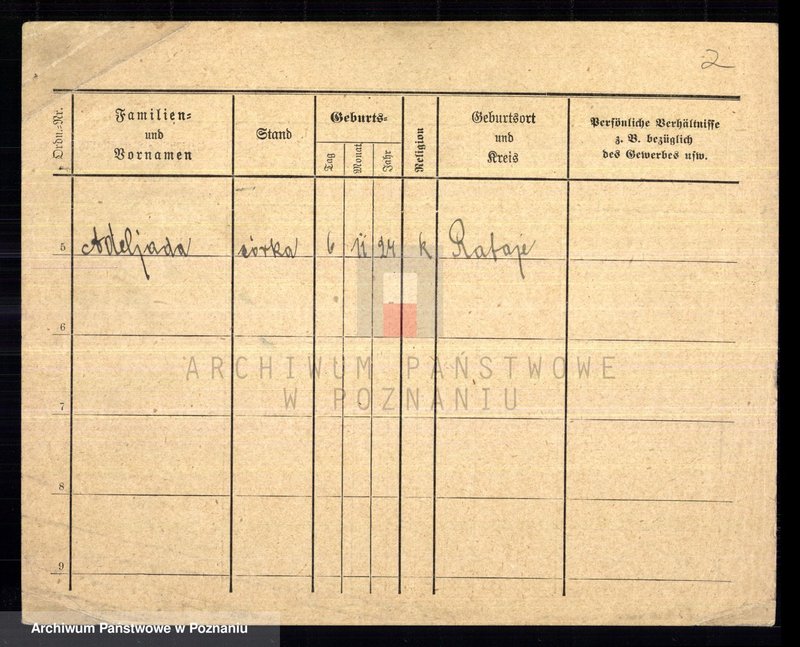 2
Ordn.-Nr.
Familien-
und
Vornamen
Stand
Geburts-
Tag
Monat
Jahr
Religion
Geburtsort
und
Kreis
Persönliche Verhältnisse
z. B. bezüglich
des Gewerbes usw.
5 Adeljada córka 6 11 24 k Rataje
6
ARCHIWUM PAŃSTWOWE
W POZNANIU
7
8
9
Archiwum Państwowe w Poznaniu